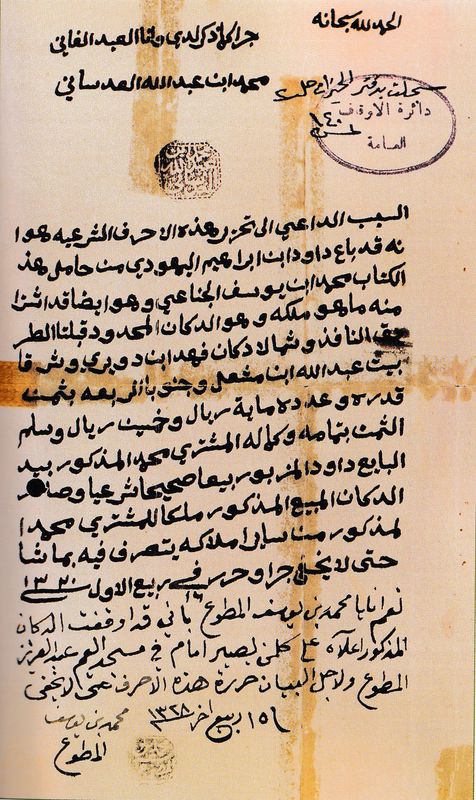 الحمد لله سبحانه
جرا كما ذكر لدي وانا العبد الفاني
محمد ابن عبد الله العدساني
سجلت بدفتر الخيرات
دائرة الاوقاف
العامة
السبب الداعي الى تحرير هذه الاحرف الشرعيه هوا
نه قد باع داود ابن ابراهيم اليهودي من حامل هذ
الكتاب محمد ابن يوسف الخناعي وهو ايضا قد اشترا
منه ما هو ملكه وهو الدكان المحدود قبلتا الطر
يق النافذ وشمالا دكان فهد ابن دويري وشرقا
بيت عبد الله ابن مشعل وجنوبا الربعه بثمن
قدره وعدده ماية ريال وخمسين ريال وسلم
الثمن بتمامه وكماله المشتري محمد المذكور بيد
البايع داود المزبور بيعا صحيحا شرعيا وصار
الدكان المبيع المذكور ملكا للمشتري محمد ا
لمذكور من ساير املاكه يتصرف فيه بما شا
حتى لا يخفى جرا وحرر في ١٦ ربيع الاول سنة ١٣٢٠
نعم انا يا محمد بن يوسف المطوع باني قد اوقفت الدكان
المذكور اعلاه على كلمن يصير امام في مسجد العم عبد العزيز
المطوع ولاجل البيان حررة هذه الاحرف حتى لا يخفى
١٥ ربيع اخر ١٣٢٨
محمد بن يوسف
المطوع